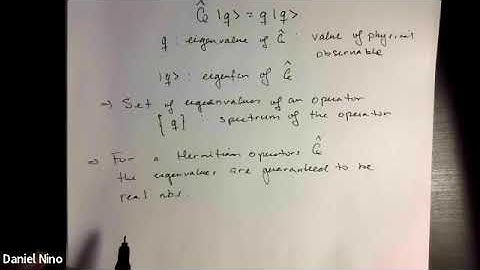 Q̂ |q> = q|q>
q : eigenvalue of Q̂ : value of physical
observable
|q> : eigenfcn of Q̂
⇒ Set of eigenvalues of an operator
{q} : spectrum of the operator
⇒ For a Hermitian operators Q̂
the eigenvalues are guaranteed to be
real nbs.
Daniel Nino